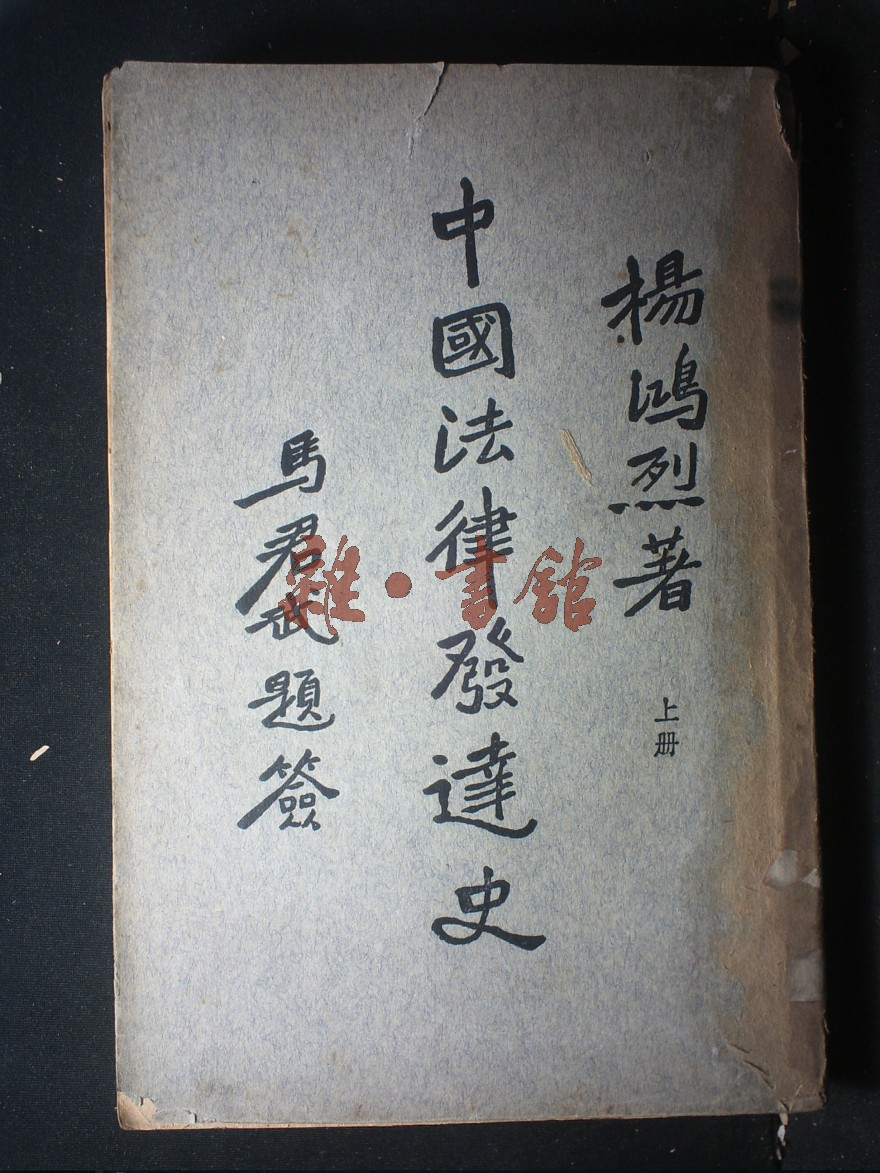 楊鴻烈著
上册
中國法律發達史
馬君武題簽
雜·書舘